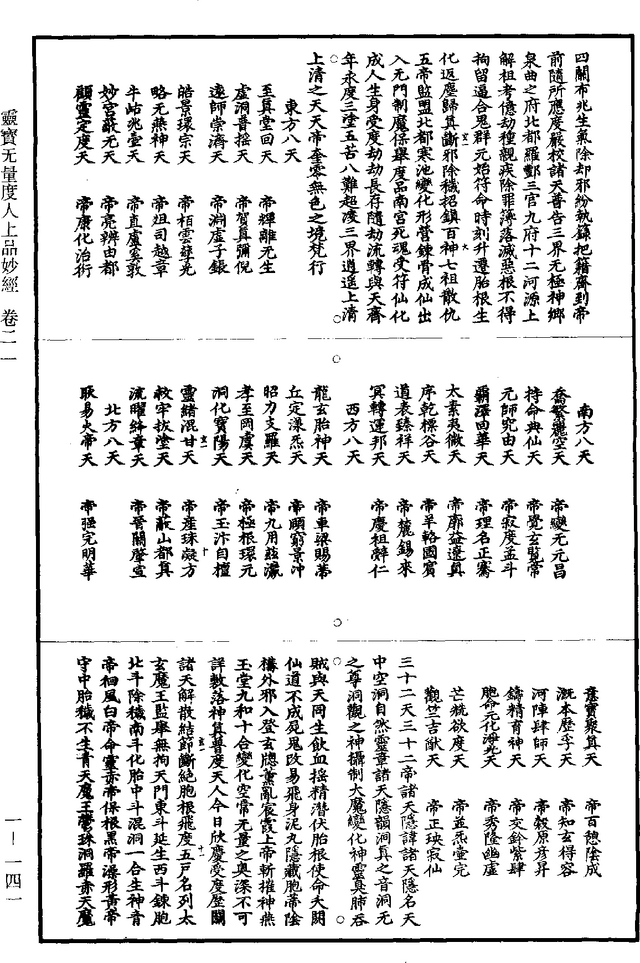 四關布兆生氣除却邪紛執籙把籍齎到帝
前隨所應度嚴校諸天普告三界元極神鄉
泉曲之府北都羅酆三官九府十二河源上
解祖考億劫種親疾除罪簿落滅惡根不得
拘留逼合鬼群元始符命時刻升遷胎根生
化返塵歸真斷邪除穢招鎮百神七祖散仇
五帝監盟北都寒池變化形營鍊骨成仙出
入元門制魔保舉度品南宮死魂受符仙化
成人生身受度劫劫長存隨劫流轉與天齊
年永度三塗五苦八難超凌三界逍遙上清
上清之天天帝奎零無色之境梵行
東方八天
至真堂回天 帝輝離元生
虛洞普摇天 帝賀真彌倪
遠師崇濟天 帝淵虛子錄
皓景環宗天 帝栢雲蘇光
略无燕神天 帝俎司越章
牛岵兆壹天 帝直盧奚敦
妙宮嚴元天 帝亮辨由都
顧靈定度天 帝康化治術
南方八天
喬繁鷹空天 帝變元元昌
持命典仙天 帝覺玄覽常
元師究由天 帝寂度孟斗
霸澤四華天 帝理名正騫
太素夷微天 帝廓益遼真
序乾標谷天 帝羊輅國賓
道表臻祥天 帝麓錫來
冥轉運邦天 帝慶祖辭仁
西方八天
龍玄胎神天 帝車梁賜蒂
丘定漾炁天 帝頤窮景沖
昭力支羅天 帝九用茲濃
孝至岡虞天 帝極根環元
洞化寶陽天 帝玉汴自檀
靈緒混甘天 帝產珠凝方
救宇拔堂天 帝蔽山都真
流曜絳章天 帝晉關肇宣
北方八天
耿易火帝天 帝强完明華
意寶聚真天 帝百憩陰成
溉本歷孚天 帝知玄得容
河陣肆師天 帝毅原彥昇
鑄精育神天 帝交鈐紫肆
胞命元化海光天 帝秀隆幽虛
芒統欲度天 帝並炁壹完
觀竺吉猷天 帝正玦寂仙
三十二天三十二帝諸天隱諱諸天隱名天
中空洞自然靈章諸天隱韻洞真之音洞元
之尊洞觀之神攝制大魔變化神靈真肺吞
賊與天同生飲血摇精潛伏胎根使命夭閼
仙道不成死鬼改易飛身泥丸隱藏胞蒂陰
構外邪入登玄牕薰亂宸霞上帝斬摧神燕
玉堂九和十合變化空常无量之奥深不可
詳敷落神真普度天人今日欣慶受度歷關
諸天解散結節斷絶胞根飛度五戸名列太
玄魔王監舉無拘天門東斗延生西斗鍊胞
北斗除穢南斗化胎中斗混洞一合生神青
帝徊風白帝命靈赤帝保根黑帝漫形黃帝
守中胎穢不生青天魔王鸞珠洞羅赤天魔
靈寶无量度人上品妙經 卷二一
一-一四一